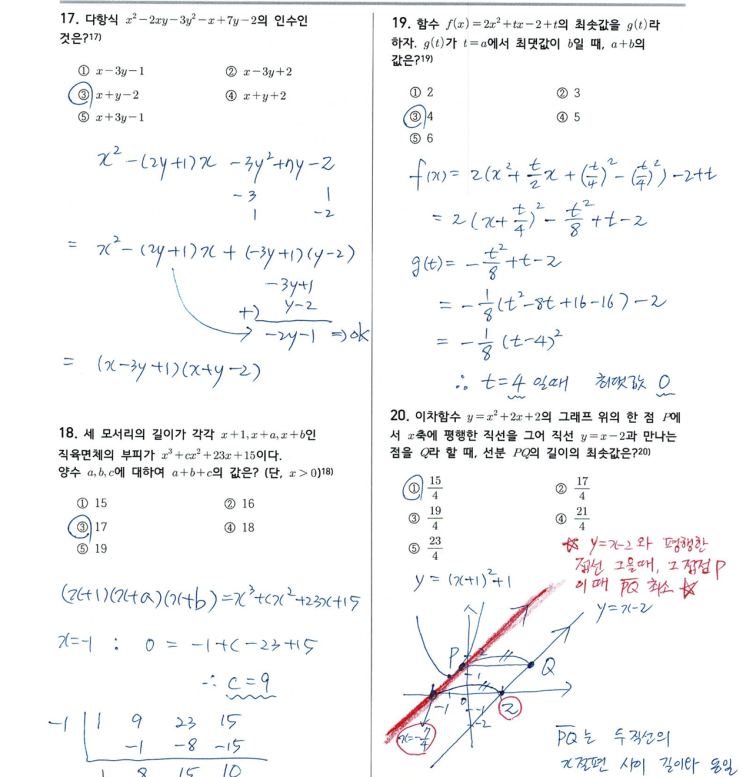 17. 다항식 x²-2xy-3y²-x+7y-2의 인수인
것은?17)
① x-3y-1
② x-3y+2
③ x+y-2
④ x+y+2
⑤ x+3y-1
x²-(2y+1)x -3y²+7y-2
-3 1
1 -2
= x²-(2y+1)x+(-3y+1)(y-2)
-3y+1
+) y-2
-2y-1 ⇒ok
= (x-3y+1)(x+y-2)
18. 세 모서리의 길이가 각각 x+1, x+a, x+b인
직육면체의 부피가 x³+cx²+23x+15이다.
양수 a, b, c에 대하여 a+b+c의 값은? (단, x>0)18)
① 15
② 16
③ 17
④ 18
⑤ 19
(x+1)(x+a)(x+b)=x³+cx²+23x+15
x=-1 : 0 = -1+c-23+15
∴ c=9
-1 1 9 23 15
-1 -8 -15
1 8 15 10
19. 함수 f(x)=2x²+tx-2+t의 최솟값을 g(t)라
하자. g(t)가 t=a에서 최댓값이 b일 때, a+b의
값은?19)
① 2
② 3
③ 4
④ 5
⑤ 6
f(x)= 2(x²+t/2x+(t/4)²-(t/4)²)-2+t
= 2(x+t/4)²-t²/8+t-2
g(t)= -t²/8+t-2
= -1/8(t²-8t+16-16)-2
= -1/8(t-4)²
∴ t=4 일때 최댓값 0
20. 이차함수 y=x²+2x+2의 그래프 위의 한 점 P에
서 x축에 평행한 직선을 그어 직선 y=x-2과 만나는
점을 Q라 할 때, 선분 PQ의 길이의 최솟값은?20)
① 15/4
② 17/4
③ 19/4
④ 21/4
⑤ 23/4
☆ y=x-2 와 평행한
접선 그을때, 그 접점 P
이때 PQ 최소 ☆
y=(x+1)²+1
y=x-2
P
2
Q
1
-1
0
2
-1
-2
x=-7/4
PQ는 두직선의
x절편 사이 길이와 동일